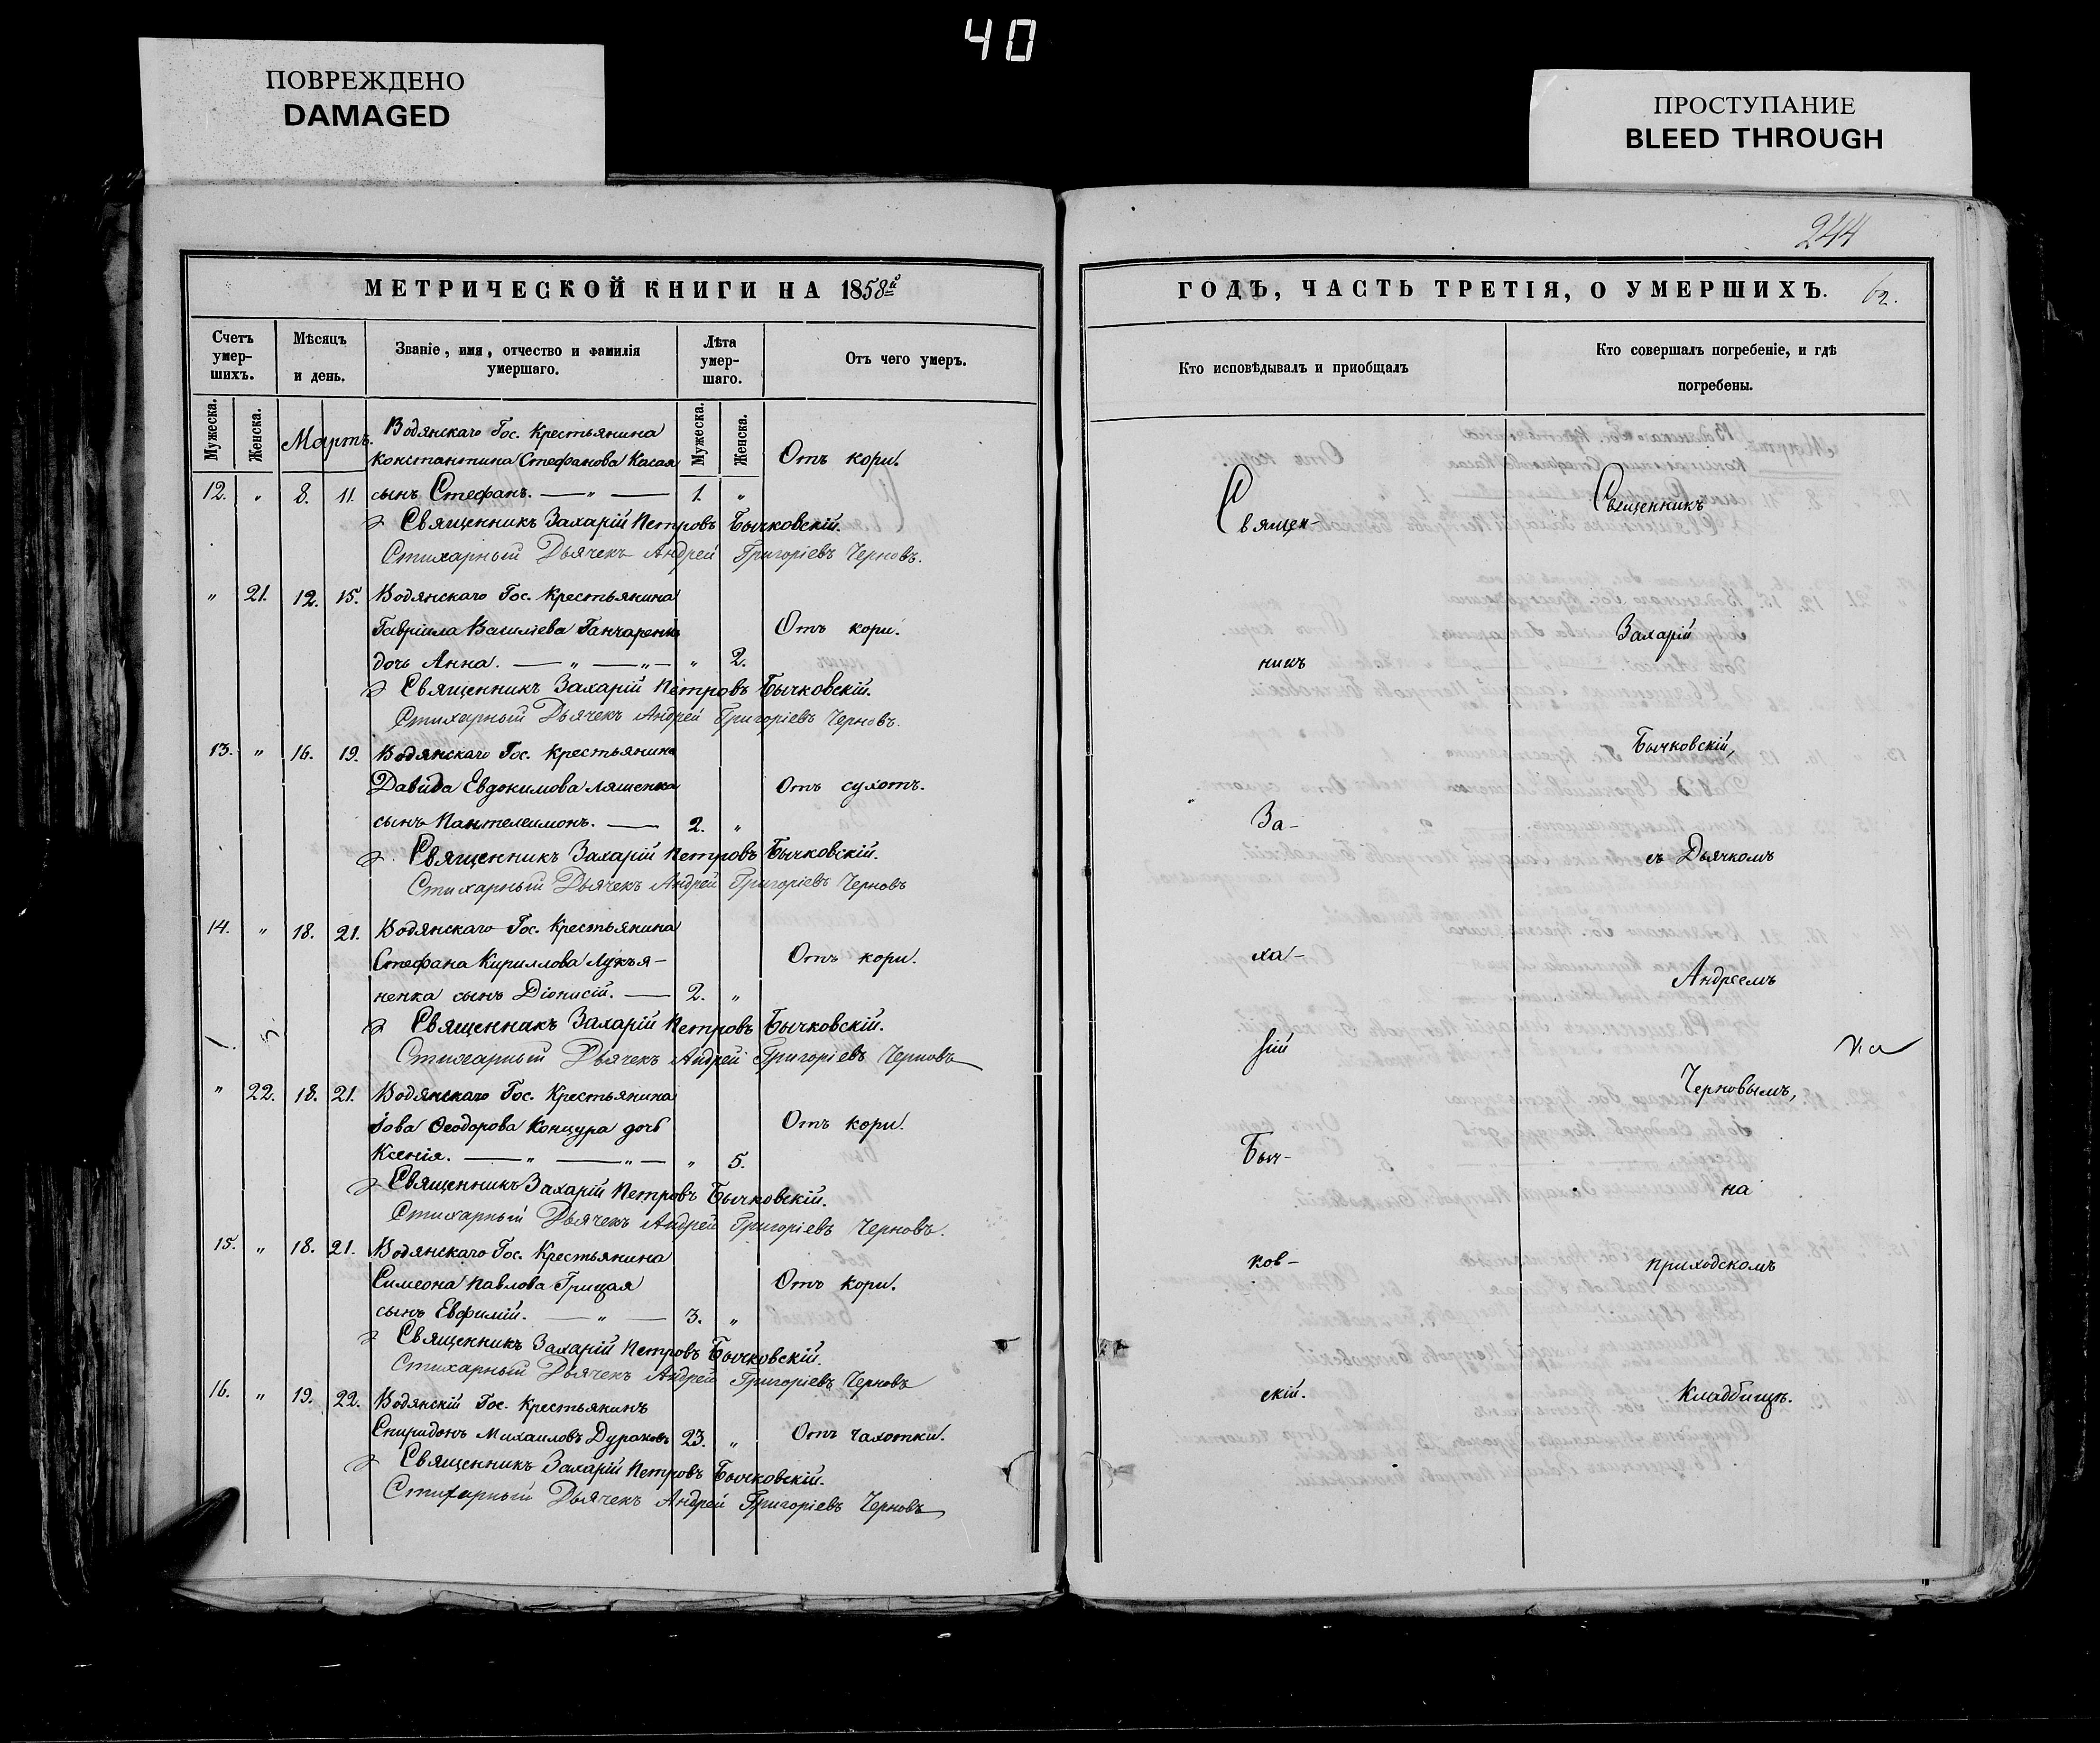 40
ПОВРЕЖДЕНО
DAMAGED
ПРОСТУПАНИЕ
BLEED THROUGH
МЕТРИЧЕСКОЙ КНИГИ НА 1858й
Счетъ умер-шихъ.
Мѣсяцъ и день.
Званіе, имя, отчество и фамилія умершаго.
Лѣта умер-шаго.
Отъ чего умеръ.
Мужеска.
Женска.
Мартъ.
Мужеска.
Женска.
Водянскаго Гос. Крестьянина
Константина Стефанова Касая
Отъ кори.
12. „ 8. 11. сынъ Стефанъ. — „ — 1. „
Священникъ Захарій Петровъ Бычковскій.
Стихарный Дьячекъ Андрей Григоріевъ Черновъ.
„ 21. 12. 15. Водянскаго Гос. Крестьянина
Гавріила Василіева Ганчаренка Отъ кори.
дочь Анна. — „ — „ — „ 2.
Священникъ Захарій Петровъ Бычковскій.
Стихарный Дьячекъ Андрей Григоріевъ Черновъ.
13. „ 16. 19. Водянскаго Гос. Крестьянина
Давида Евдокимова Ляшенка Отъ сухотъ.
сынъ Пантелеимонъ. — 2. „
Священникъ Захарій Петровъ Бычковскій.
Стихарный Дьячекъ Андрей Григоріевъ Черновъ
14. „ 18. 21. Водянскаго Гос. Крестьянина
Стефана Кириллова Лукья- Отъ кори.
ненка сынъ Діонисій. — 2. „
Священникъ Захарій Петровъ Бычковскій.
Стихарный Дьячекъ Андрей Григоріевъ Черновъ
„ 22. 18. 21. Водянскаго Гос. Крестьянина
Іова Ѳеодорова Концура дочь Отъ кори.
Ксенія. — „ — „ — „ 5.
Священникъ Захарій Петровъ Бычковскій.
Стихарный Дьячекъ Андрей Григоріевъ Черновъ.
15. „ 18. 21. Водянскаго Гос. Крестьянина
Симеона Павлова Грицая Отъ кори.
сынъ Евфимій. — „ — 3. „
Священникъ Захарій Петровъ Бычковскій.
Стихарный Дьячекъ Андрей Григоріевъ Черновъ
16. „ 19. 22. Водянскій Гос. Крестьянинъ
Спиридонъ Михаиловъ Дураковъ 23. „ Отъ чахотки.
Священникъ Захарій Петровъ Бычковскій.
Стихарный Дьячекъ Андрей Григоріевъ Черновъ
244
ГОДЪ, ЧАСТЬ ТРЕТІЯ, О УМЕРШИХЪ.
62.
Кто исповѣдывалъ и пріобщалъ
Кто совершалъ погребеніе, и гдѣ погребены.
Священ-
никъ
За-
ха-
рій
Быч-
ков-
скій.
Священникъ
Захарій
Бычковскій,
съ Дьячкомъ
Андреемъ
Черновымъ,
на
приходскомъ
Кладбищѣ.